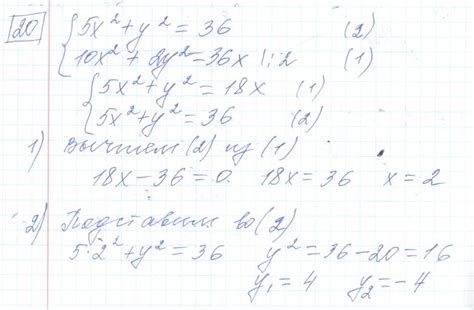 20 { 5x² + y² = 36 (2)
10x² + 2y² = 36x |:2 (1)
{ 5x² + y² = 18x (1)
5x² + y² = 36 (2)
1) Вычтем (2) из (1)
18x - 36 = 0. 18x = 36 x = 2
2) Подставим во (2)
5·2² + y² = 36 y² = 36 - 20 = 16
y₁ = 4 y₂ = -4